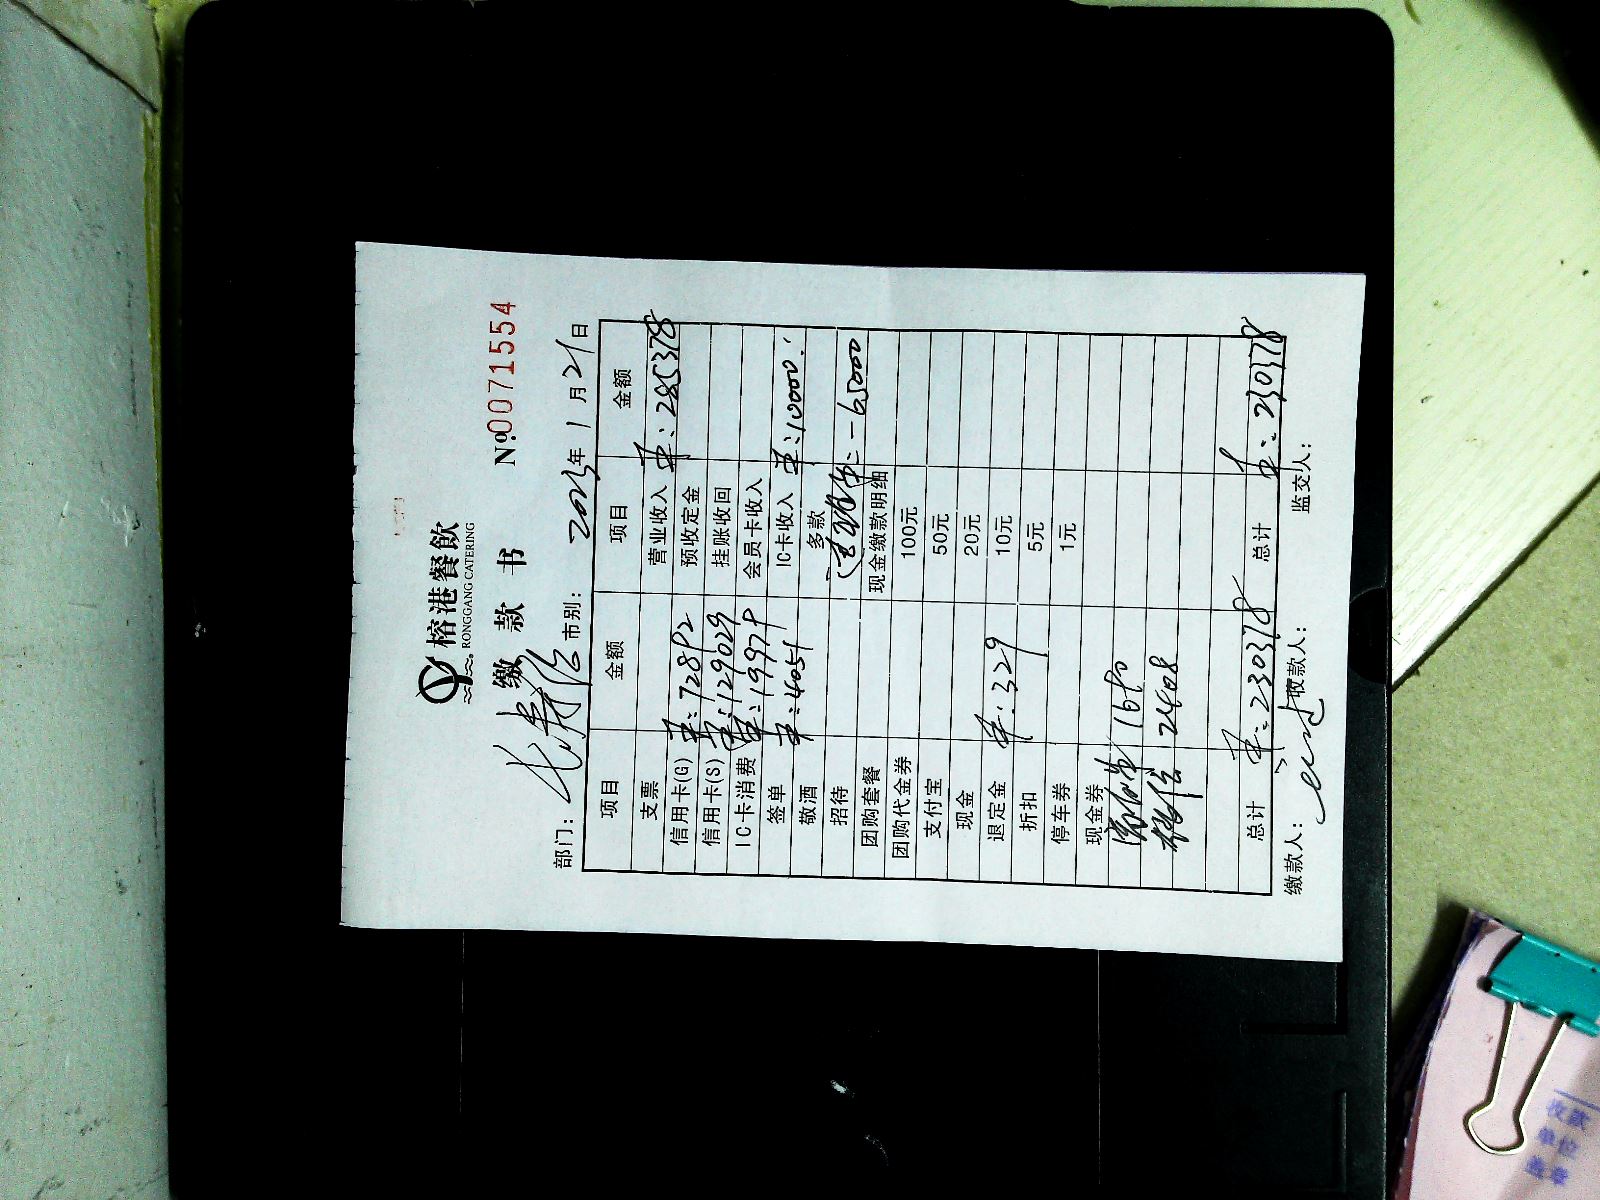 榕港餐飲
RONGGANG CATERING
缴 款 书
№0071554
部门： 市别： 2023年 1 月 21 日
项目 金额 项目 金额
支票 营业收入 ¥：285378
信用卡(G) ¥：72892 预收定金
信用卡(S) ¥：129029 挂账收回
IC卡消费 ¥：19979 会员卡收入
签单 ¥：4051 IC卡收入 ¥：10000.
敬酒 多款
招待 -65000
团购套餐 现金缴款明细
团购代金券 100元
支付宝 50元
现金 20元
退定金 ¥：329 10元
折扣 5元
停车券 1元
现金券
2408
总计 ¥：230378 总计 ¥：230378
缴款人： 收款人： 监交人：
收款
单位
盖章